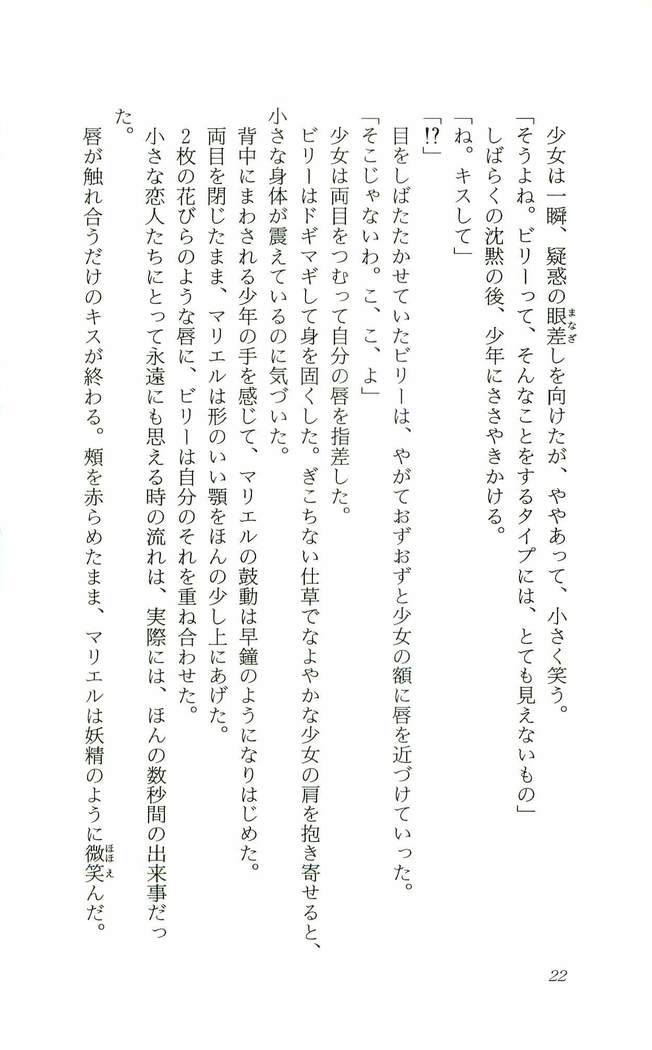 少女は一瞬、疑惑の眼差しを向けたが、ややあって、小さく笑う。
まなざ
「そうよね。ビリーって、そんなことをするタイプには、とても見えないもの」
しばらくの沈黙の後、少年にささやきかける。
「ね。キスして」
「!?」
目をしばたたかせていたビリーは、やがておずおずと少女の額に唇を近づけていった。
「そこじゃないわ。こ、こ、よ」
少女は両目をつむって自分の唇を指差した。
ビリーはドギマギして身を固くした。ぎこちない仕草でなよやかな少女の肩を抱き寄せると、
小さな身体が震えているのに気づいた。
背中にまわされる少年の手を感じて、マリエルの鼓動は早鐘のようになりはじめた。
両目を閉じたまま、マリエルは形のいい顎をほんの少し上にあげた。
2枚の花びらのような唇に、ビリーは自分のそれを重ね合わせた。
小さな恋人たちにとって永遠にも思える時の流れは、実際には、ほんの数秒間の出来事だっ
た。
唇が触れ合うだけのキスが終わる。頬を赤らめたまま、マリエルは妖精のように微笑んだ。
ほほえ
22